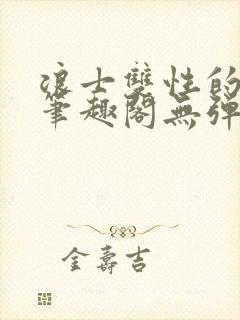 浪士雙性的
筆趣閣無彈
金壽吉